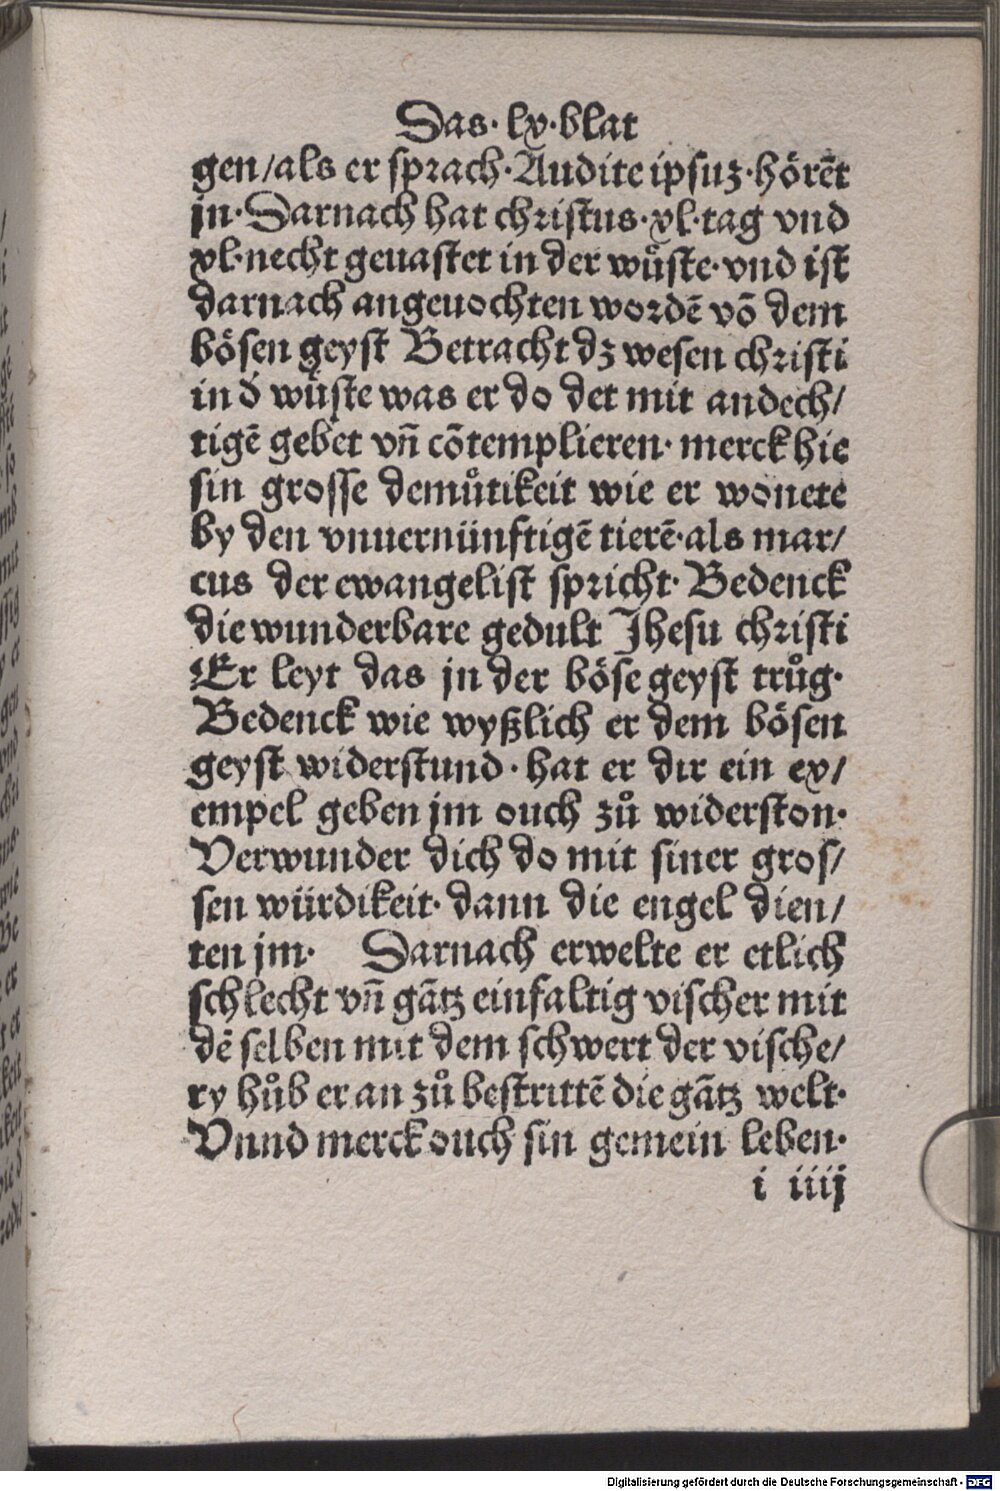 Das· lx·blat
gen/als er sprach·Audite ipsuz·hörēt
jn·Darnach hat christus·xl·tag vnd
xl·necht geuastet in der wůste·vnd ist
darnach angeuochten wordē vō dem
bösen geyst Betracht dz wesen christi
in d' wůste was er do det mit andech/
tigē gebet vn̄ cōtemplieren·merck hie
sin grosse demůtikeit wie er wonete
by den vnuernünftigē tierē·als mar/
cus der ewangelist spricht·Bedenck
die wunderbare gedult Jhesu christi
Er leyt das jn der böse geyst trůg·
Bedenck wie wyßlich er dem bösen
geyst widerstund·hat er dir ein ex/
empel geben jm ouch zů widerston·
Verwunder dich do mit siner gros/
sen würdikeit·dann die engel dien/
ten jm· Darnach erwelte er etlich
schlecht vn̄ gātz einfaltig vischer mit
dē selben mit dem schwert der vische/
ry hůb er an zů bestrittē die gātz welt·
Vnnd merck ouch sin gemein leben·
i iiij
Digitalisierung gefördert durch die Deutsche Forschungsgemeinschaft - DFG